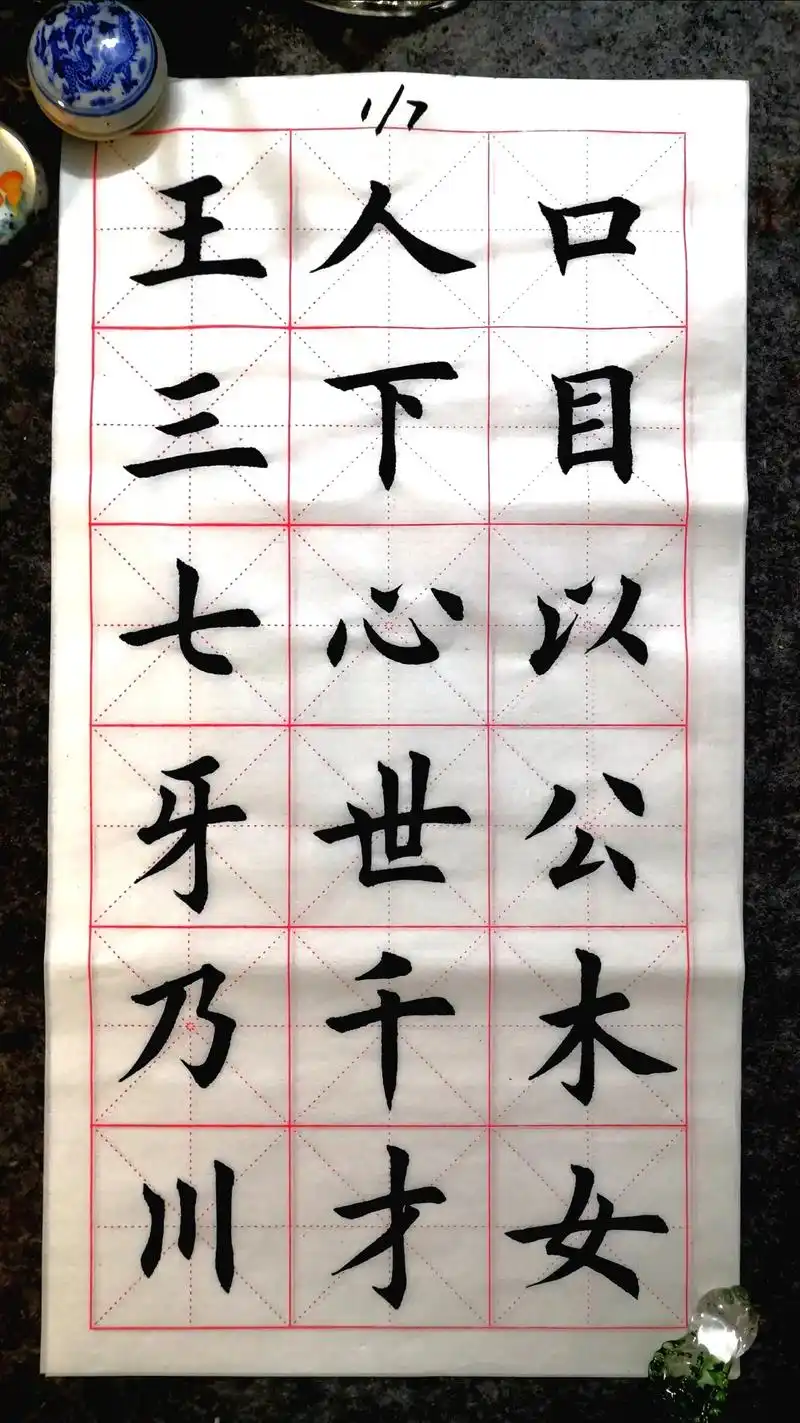 1/7
口目以公木女
人下心世千才
王三七牙乃川